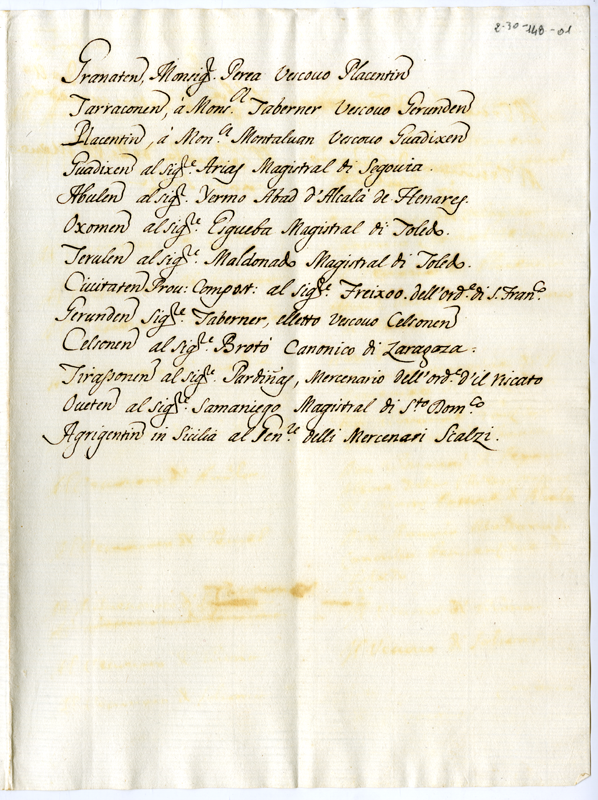 2-30-148-01
Granaten, Monsig.r Perea Vescovo Placentin
Tarraconen, á Mons.r Taberner Vescovo Gerunden
Placentin, á Mon.r Montaluan Vescovo Guadixen
Guadixen al sig.e Arias Magistral di Segouia.
Abulen al sig.r Yermo Abad d'Alcalá de Henares.
Oxomen al sig.re Esgueba Magistral di Toledo.
Terulen al sig.re Maldonado Magistral di Toledo.
Ciuitaten Prou: Compost: al sig.re Freixoo dell'ord.e di S. Fran.co
Gerunden sig.re Taberner, elletto Vescovo Celsonen
Celsonen al sig.re Brotó Canonico di Zaragoza:
Tirassonen al sig.re Pardiñas, Mercenario dell'ord.e d'il ricato
Oueten al sig.re Samaniego Magistral di S.to Dom.co
Agrigentin in Sicilia al Gen.le delli Mercenari Scalzi.